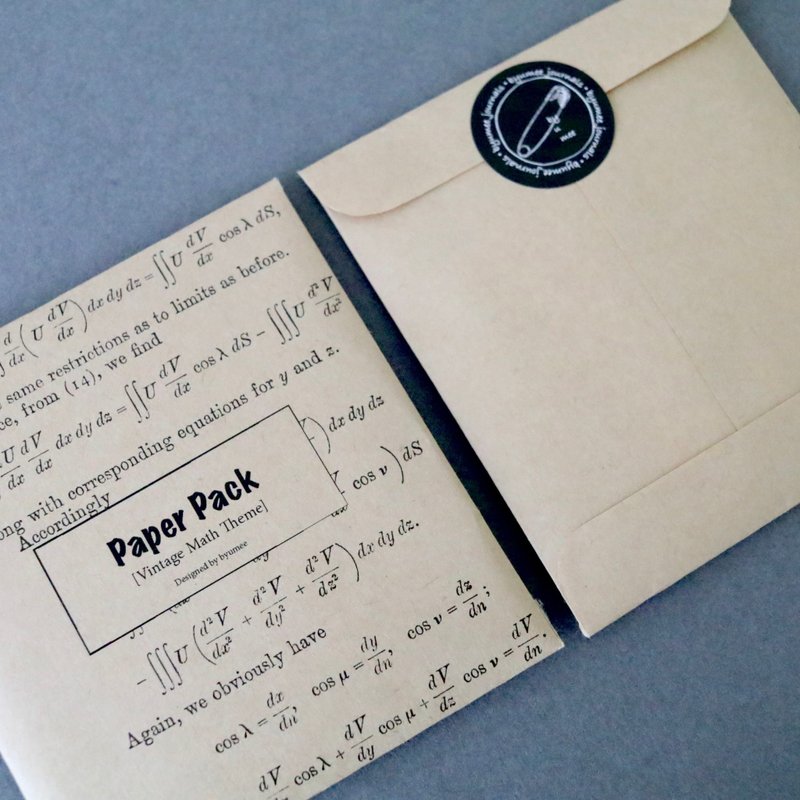 d/dx (U dV/dx) dx dy dz = ∬ U dV/dx cos λ dS,
same restrictions as to limits as before.
from (14), we find
U dV/dx dx dy dz = ∬ U dV/dx cos λ dS − ∭ U d²V/dx²
with corresponding equations for y and z.
Accordingly
) dx dy dz
cos ν) dS
Paper Pack
[Vintage Math Theme]
Designed by byumee
− ∭ U (d²V/dx² + d²V/dy² + d²V/dz²) dx dy dz.
Again, we obviously have
cos λ = dx/dn, cos μ = dy/dn, cos ν = dz/dn;
dV/dx cos λ + dV/dy cos μ + dV/dz cos ν = dV/dn.
• byumee journals • byumee journals • byumee journals